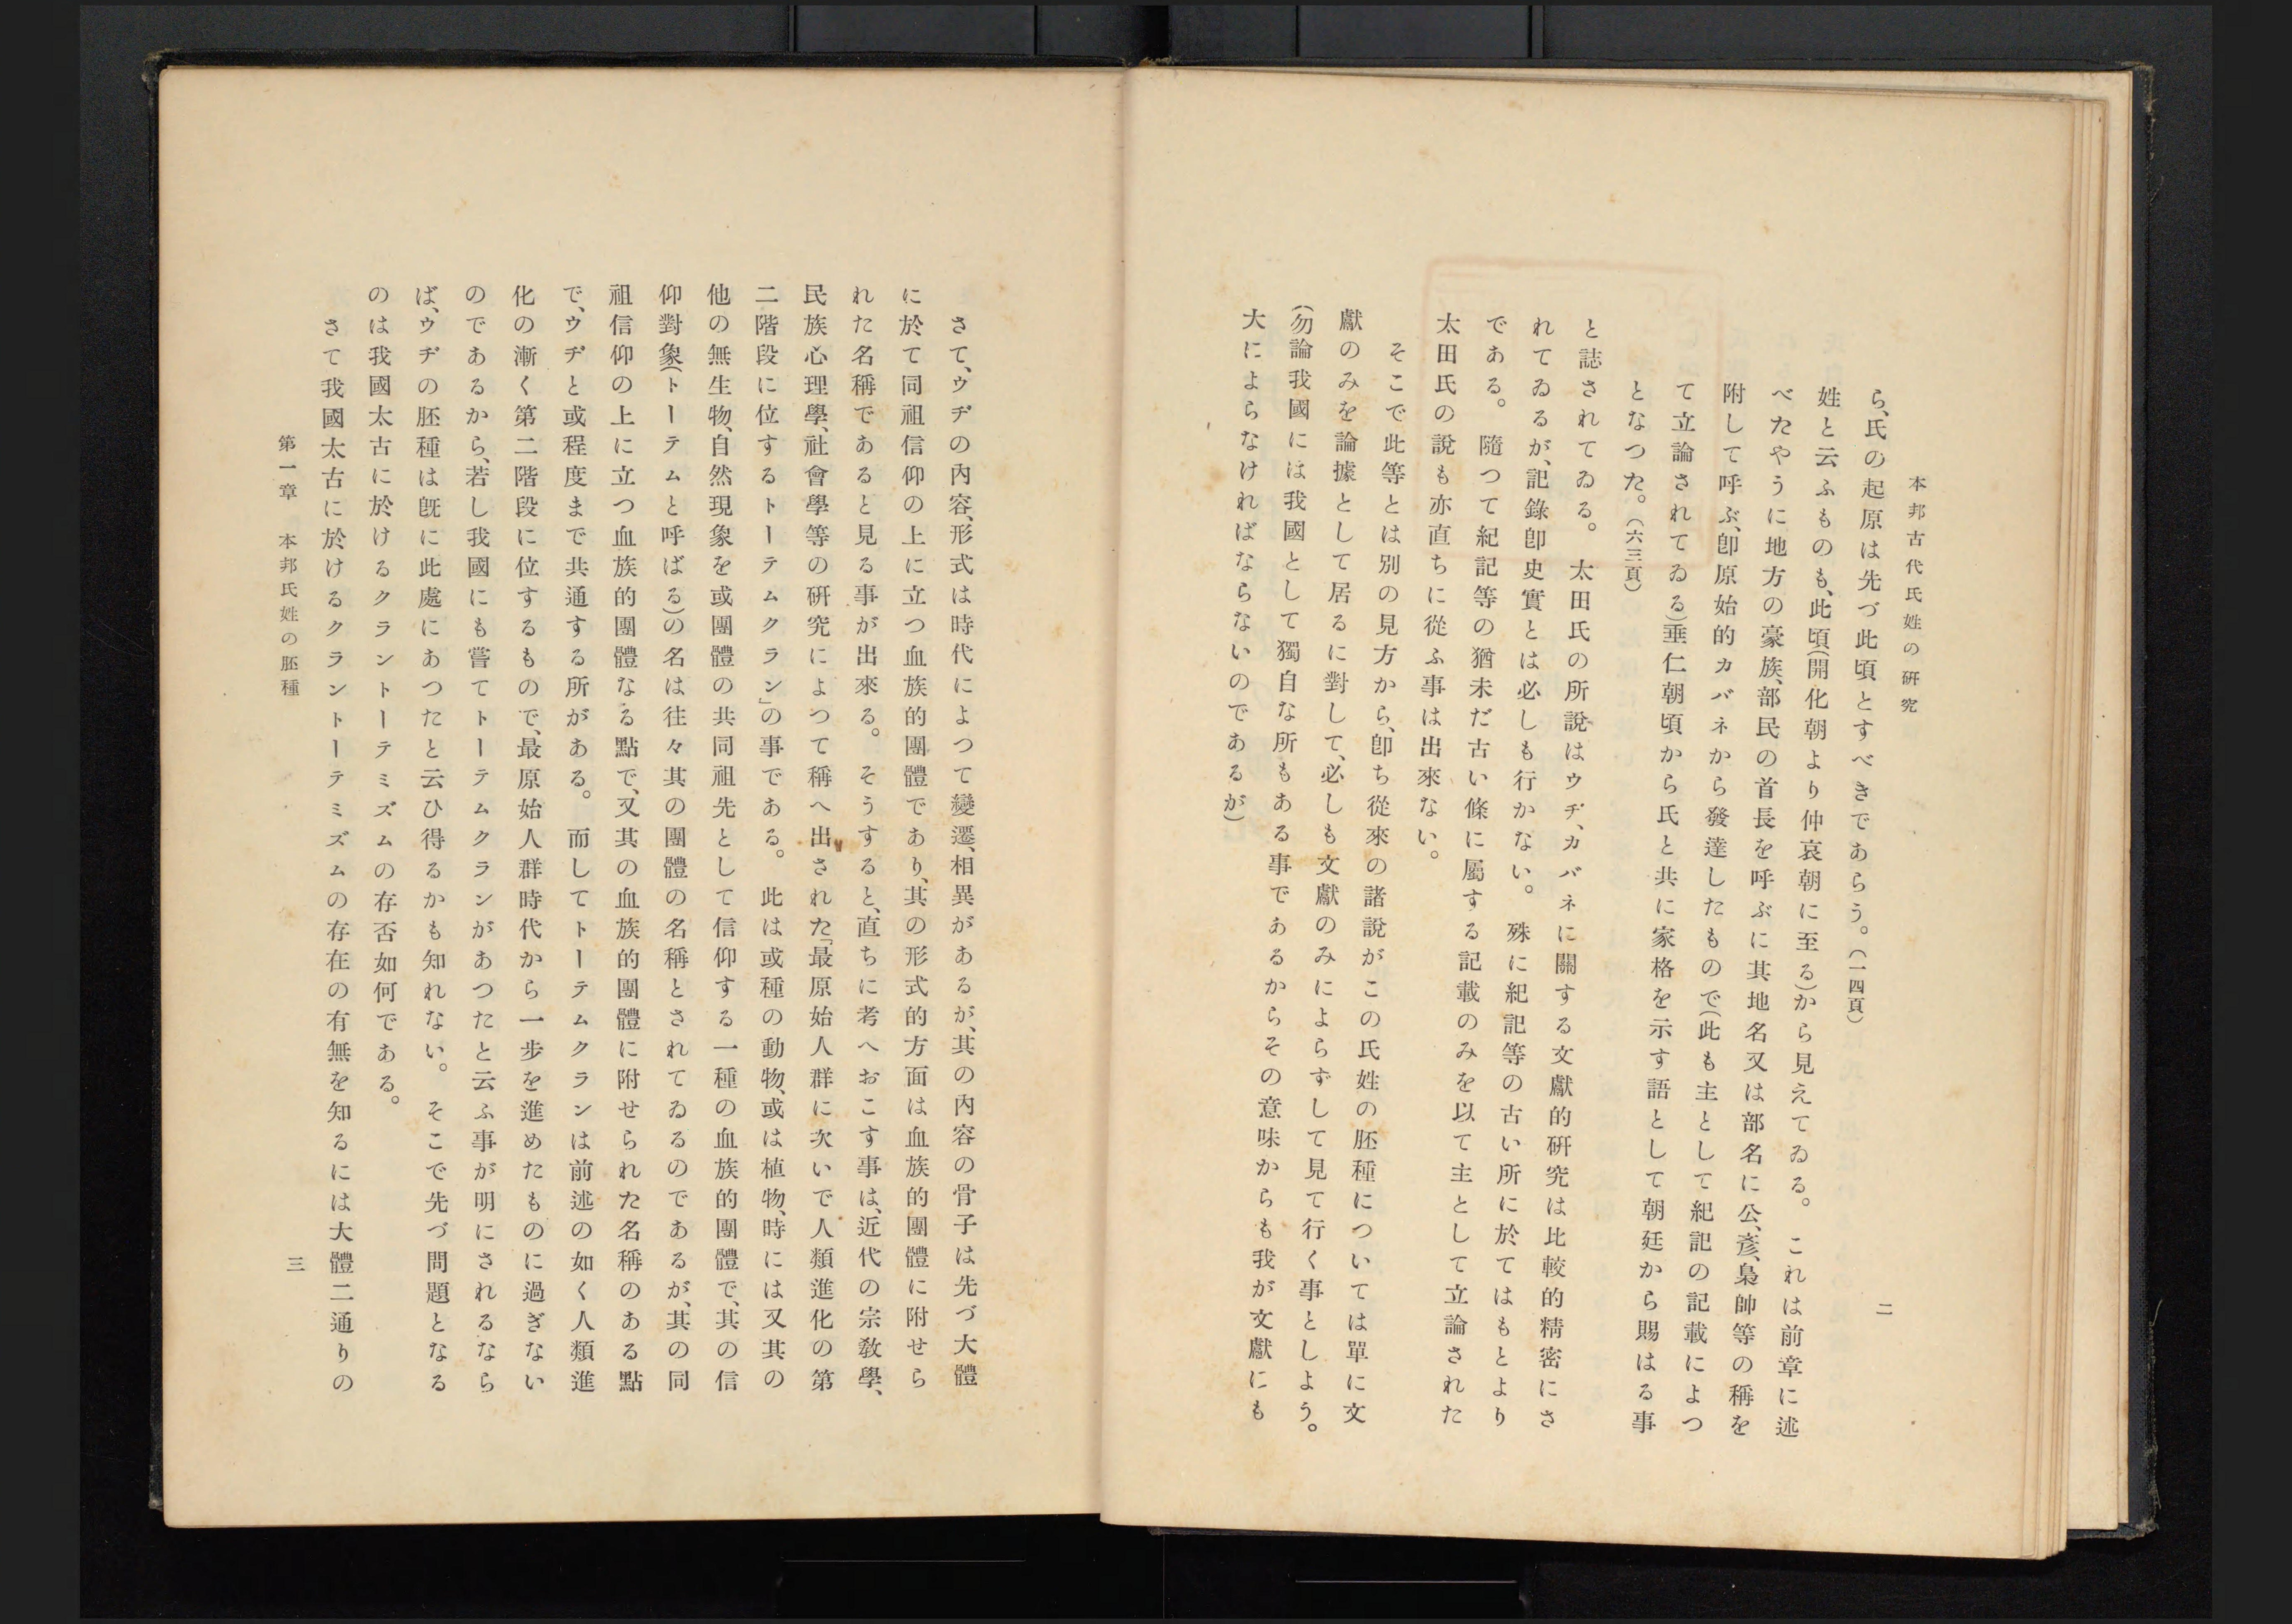 本邦古代氏姓の硏究
二
ら、氏の起原は先づ此頃とすべきであらう。（一四頁）
姓と云ふものも、此頃（開化朝より仲哀朝に至る）から見えてゐる。これは前章に述
べたやうに地方の豪族、部民の首長を呼ぶに其地名又は部名に公、彥、梟帥等の稱を
附して呼ぶ、卽原始的カバネから發達したもので（此も主として紀記の記載によつ
て立論されてゐる）垂仁朝頃から氏と共に家格を示す語として朝廷から賜はる事
となつた。（六三頁）
と誌されてゐる。太田氏の所說はウヂ、カバネに關する文獻的硏究は比較的精密にさ
れてゐるが、記錄卽史實とは必しも行かない。殊に紀記等の古い所に於てはもとより
である。隨つて紀記等の猶未だ古い條に屬する記載のみを以て主として立論された
太田氏の說も亦直ちに從ふ事は出來ない。
そこで此等とは別の見方から、卽ち從來の諸說がこの氏姓の胚種については單に文
獻のみを論據として居るに對して、必しも文獻のみによらずして見て行く事としよう。
（勿論我國には我國として獨自な所もある事であるからその意味からも我が文獻にも
大によらなければならないのであるが）
さて、ウヂの內容、形式は時代によつて變遷、相異があるが、其の內容の骨子は先づ大體
に於て同祖信仰の上に立つ血族的團體であり、其の形式的方面は血族的團體に附せら
れた名稱であると見る事が出來る。そうすると、直ちに考へおこす事は、近代の宗敎學、
民族心理學、社會學等の硏究によつて稱へ出された「最原始人群に次いで人類進化の第
二階段に位するトーテムクラン」の事である。此は或種の動物、或は植物、時には又其の
他の無生物、自然現象を或團體の共同祖先として信仰する一種の血族的團體で、其の信
仰對象（トーテムと呼ばる）の名は往々其の團體の名稱とされてゐるのであるが、其の同
祖信仰の上に立つ血族的團體なる點で、又其の血族的團體に附せられた名稱のある點
で、ウヂと或程度まで共通する所がある。而してトーテムクランは前述の如く人類進
化の漸く第二階段に位するもので、最原始人群時代から一步を進めたものに過ぎない
のであるから、若し我國にも嘗てトーテムクランがあつたと云ふ事が明にされるなら
ば、ウヂの胚種は旣に此處にあつたと云ひ得るかも知れない。そこで先づ問題となる
のは我國太古に於けるクラントーテミズムの存否如何である。
さて我國太古に於けるクラントーテミズムの存在の有無を知るには大體二通りの
第一章　本邦氏姓の胚種
三